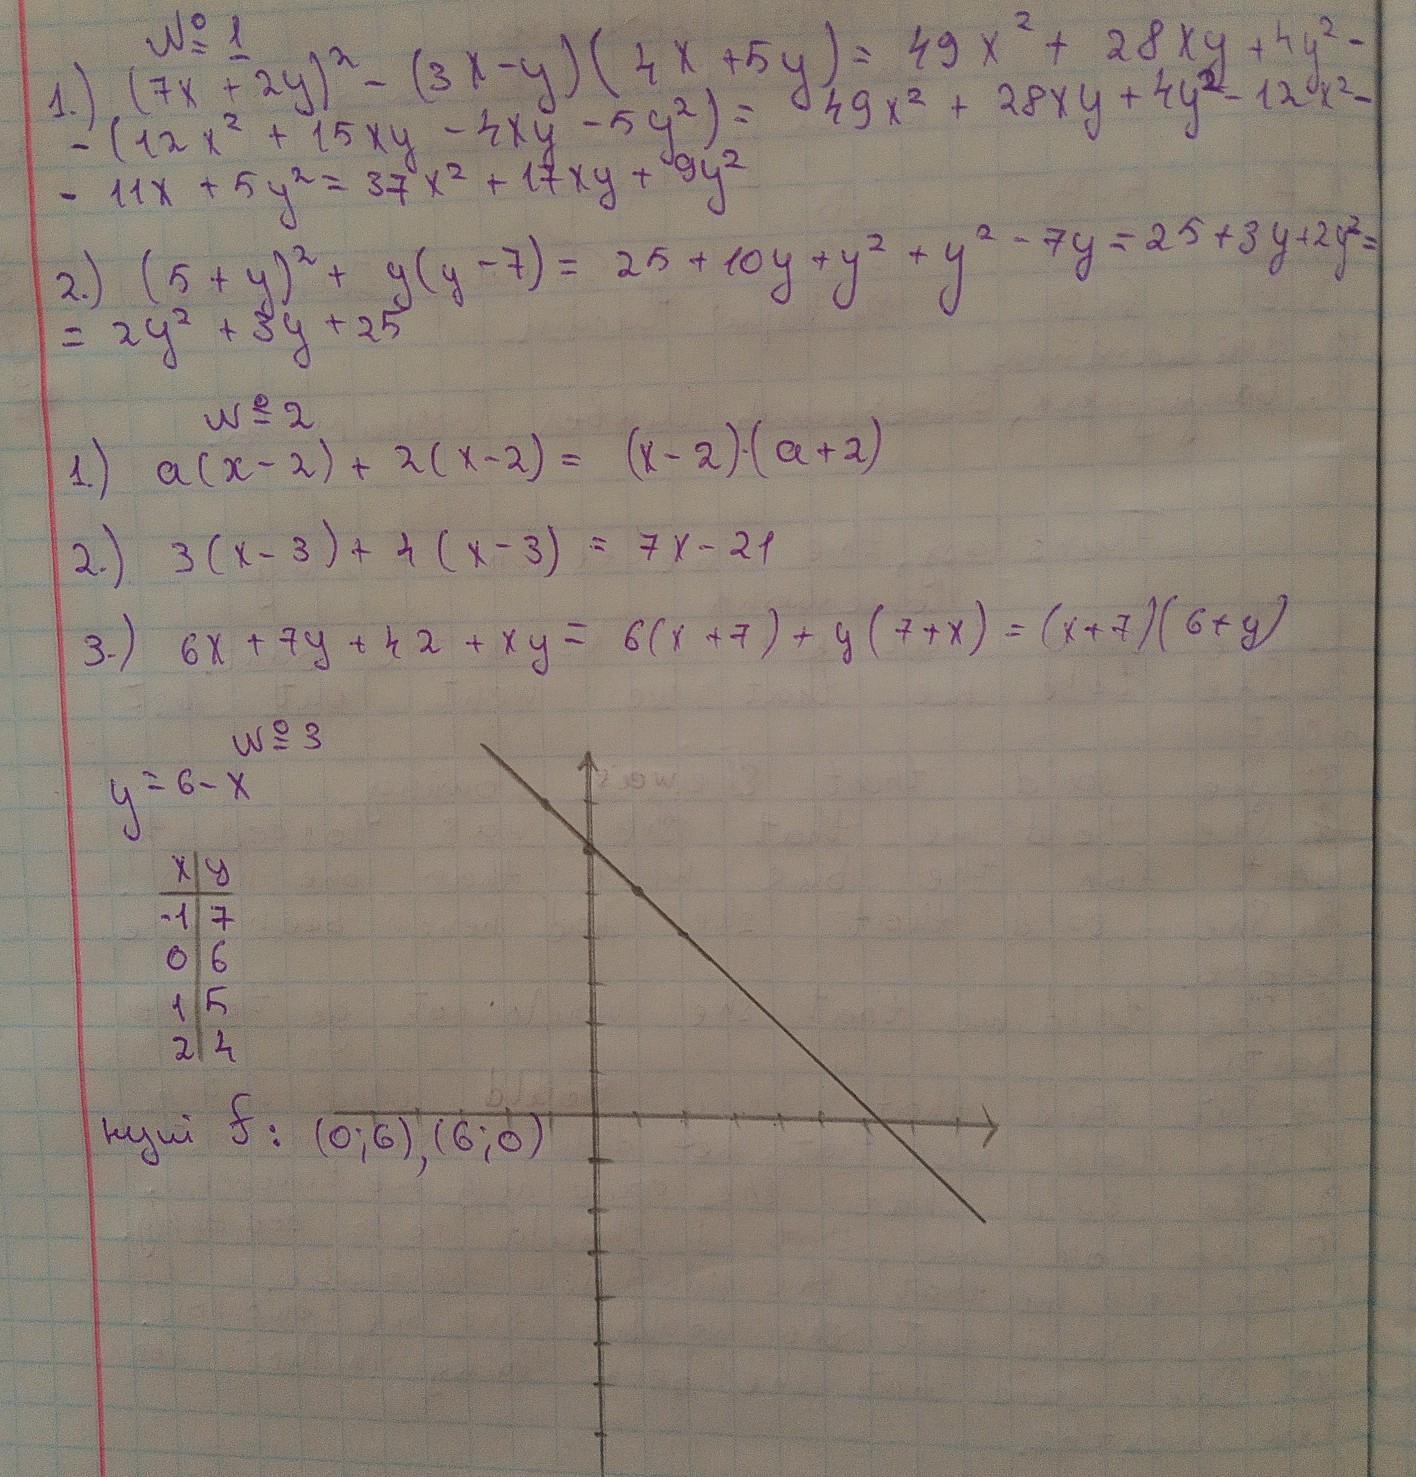 № 1
1.) (7x + 2y)² - (3x - y)(4x + 5y) = 49x² + 28xy + 4y² -
- (12x² + 15xy - 4xy - 5y²) = 49x² + 28xy + 4y² - 12x² -
- 11x + 5y² = 37x² + 17xy + 9y²
2.) (5 + y)² + y(y - 7) = 25 + 10y + y² + y² - 7y = 25 + 3y + 2y² =
= 2y² + 3y + 25
№ 2
1.) a(x - 2) + 2(x - 2) = (x - 2)·(a + 2)
2.) 3(x - 3) + 4(x - 3) = 7x - 21
3.) 6x + 7y + 42 + xy = 6(x + 7) + y(7 + x) = (x + 7)(6 + y)
№ 3
y = 6 - x
x | y
-1 | 7
0 | 6
1 | 5
2 | 4
нулі f: (0; 6), (6; 0)